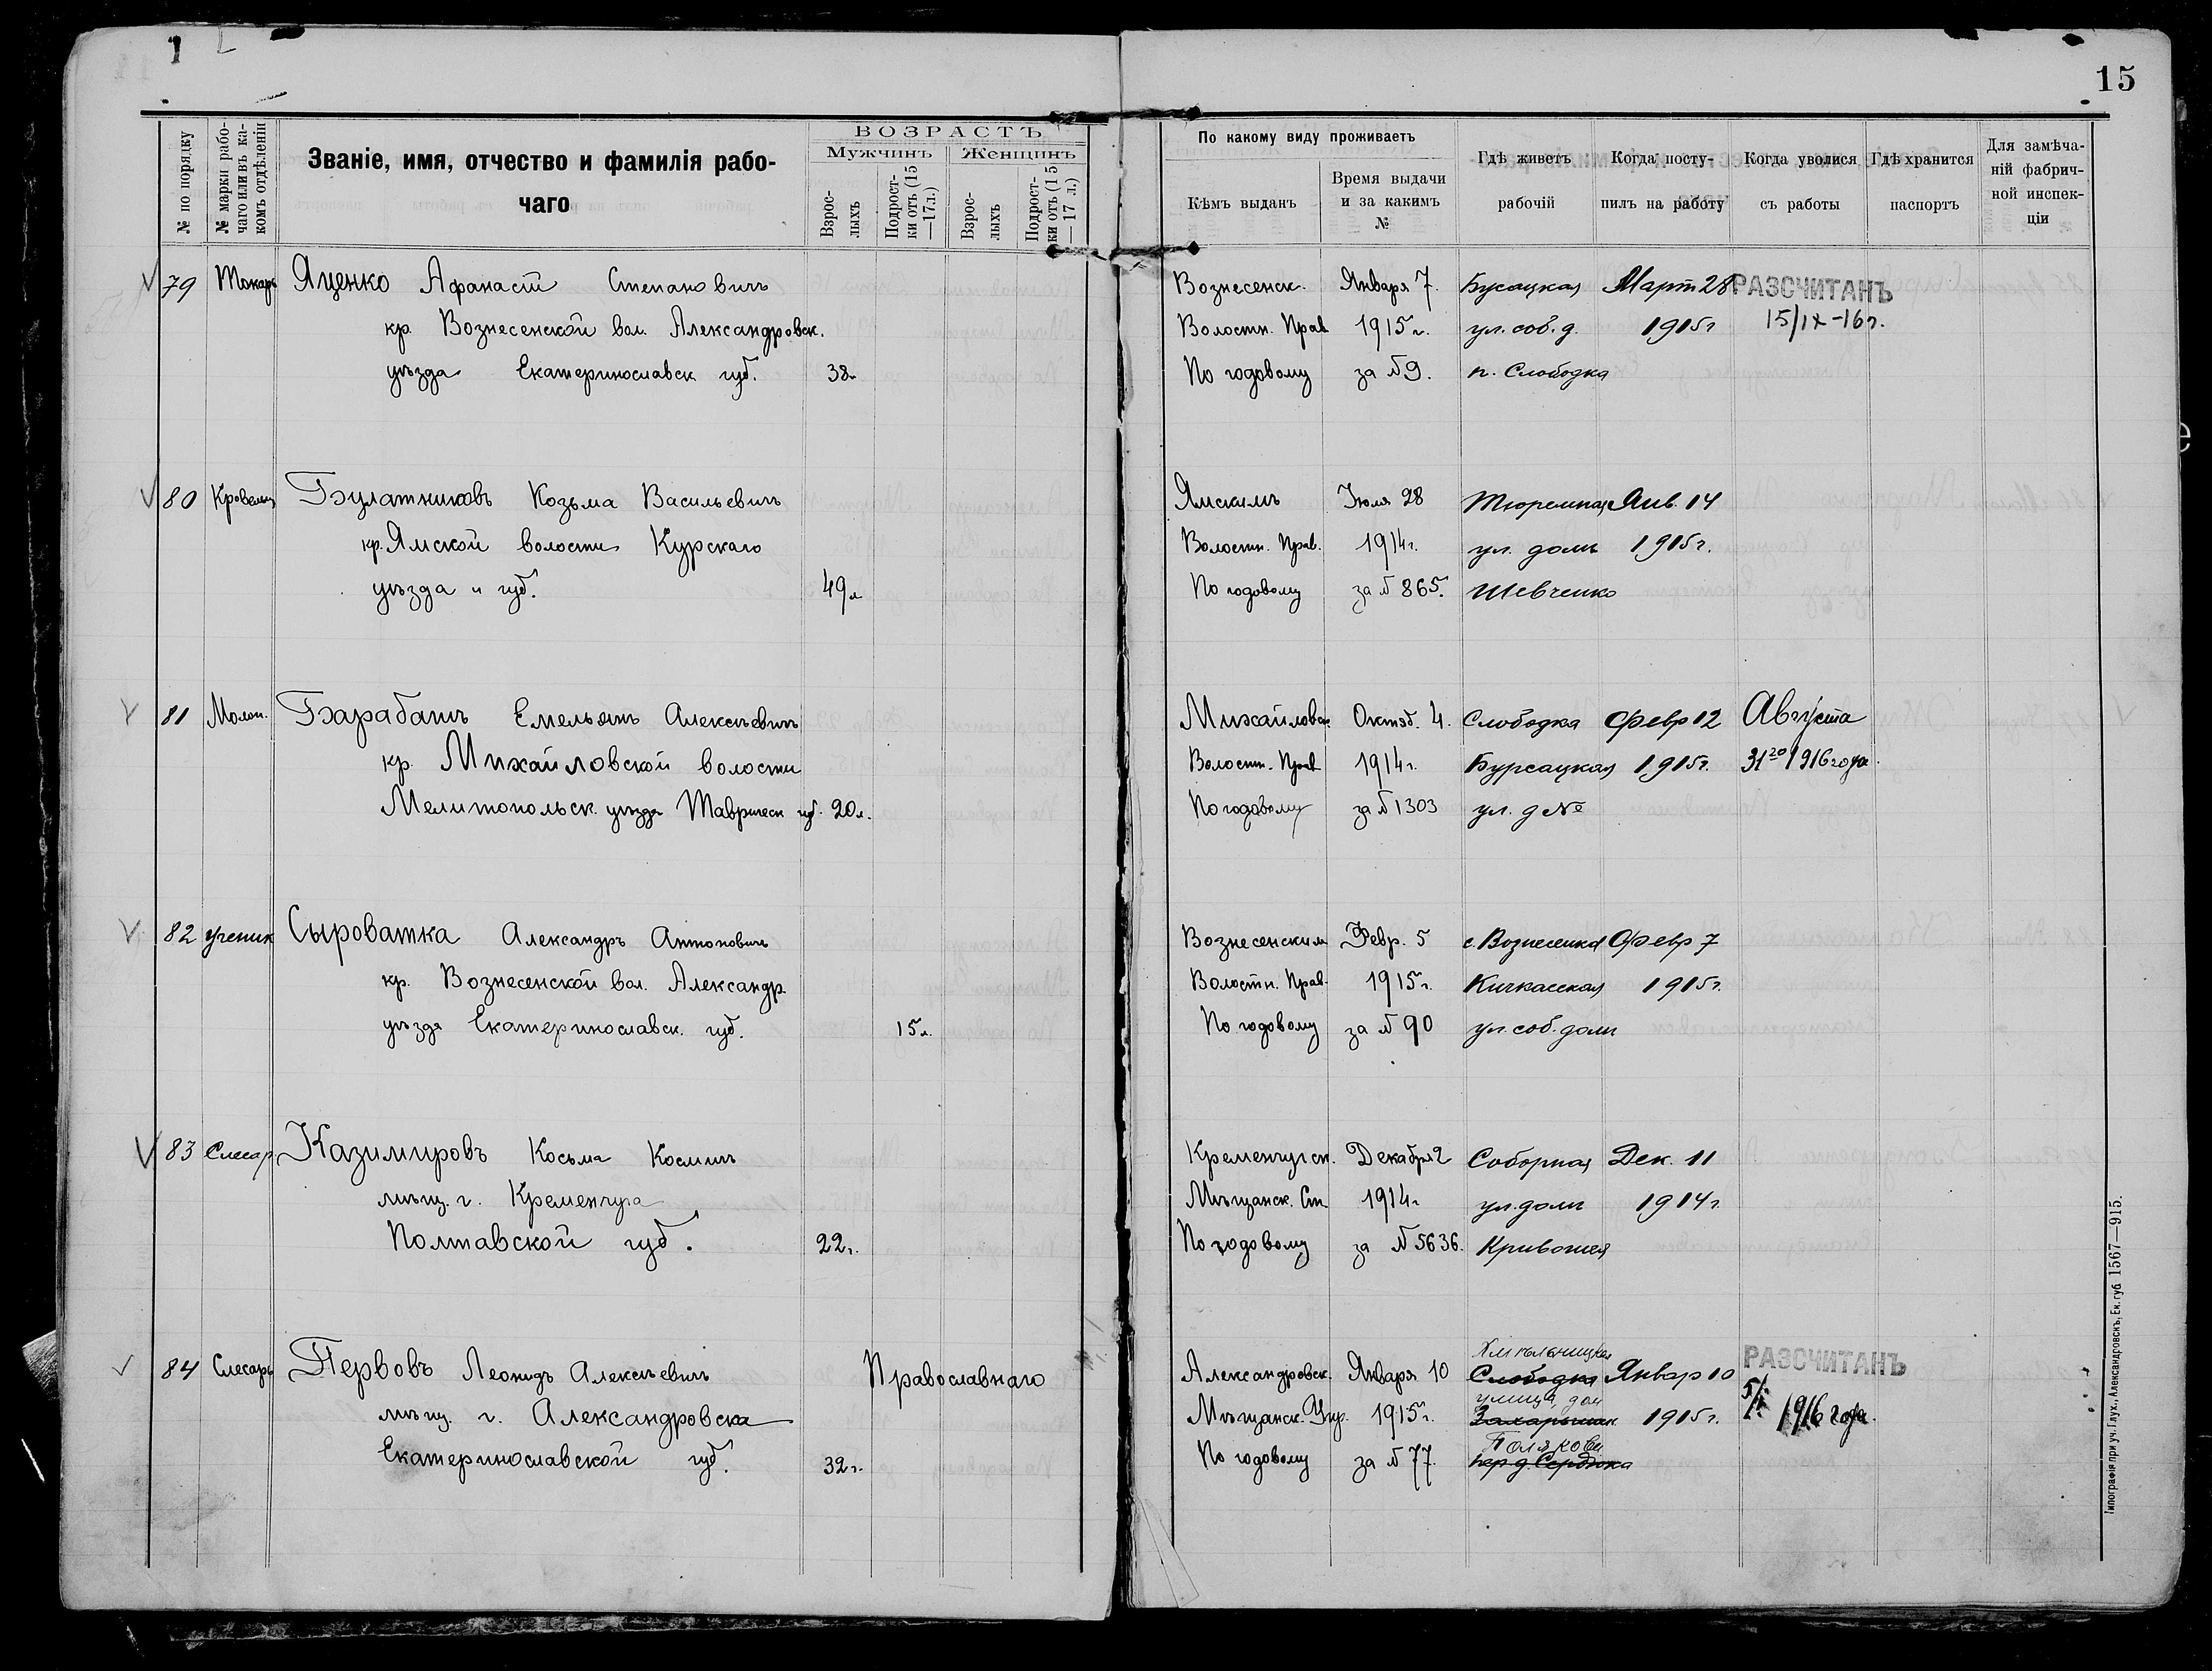 15
№ по порядку
№ марки рабо-
чаго или въ ка-
комъ отдѣленіи
Званіе, имя, отчество и фамилія рабо-
чаго
ВОЗРАСТЪ
Мужчинъ
Женщинъ
Взрос-
лыхъ
Подрост-
ки отъ (15
—17л.)
Взрос-
лыхъ
Подрост-
ки отъ (15
—17 л.)
По какому виду проживаетъ
Кѣмъ выданъ
Время выдачи
и за какимъ
№
Гдѣ живетъ
рабочій
Когда посту-
пилъ на работу
Когда уволися
съ работы
Гдѣ хранится
паспортъ
Для замѣча-
ній фабрич-
ной инспек-
ціи
79 Токарь Яценко Афанасій Степановичъ Вознесенск. Января 7. Бусацкая Март 28 РАЗСЧИТАНЪ
кр. Вознесенской вол. Александровск. Волостн. Прав 1915 г. ул. соб. д. 1915 г 15/IX-16 г.
уѣзда Екатеринославск губ. 38 По годовому за № 9. п. Слободка
80 Кровельщ Булатниковъ Козьма Васильевичъ Ямскимъ Іюля 28 Тюремная Янв. 14
кр. Ямской волости Курскаго Волостн. Прав. 1914 г. ул. домъ 1915 г.
уѣзда и губ. 49 л По годовому за № 865. Шевченко
81 Молот. Барабашъ Емельянъ Алексѣевичъ Михайловск Октяб. 4. Слободка Февр 12 Августа
кр. Михайловской волости Волостн. Прав 1914 г. Бурсацкая 1915 г. 31го 1916 года.
Мелитопольск. уѣзда Таврическ губ. 20 л. По годовому за № 1303 ул. д №
82 Ученик Сыроватка Александръ Антоновичъ Вознесенским Февр. 5 с. Вознесенка Февр 7
кр. Вознесенской вол. Александр. Волостн. Прав. 1915 г. Кичкасская 1915 г.
уѣзда Екатеринославск. губ. 15 л. По годовому за № 90 ул. соб. домъ
83 Слесар Казимировъ Косьма Космичъ Кременчугск. Декабря 2 Соборная Дек. 11
мѣщ. г. Кременчуга Мѣщанск. Ст. 1914 г ул. домъ 1914 г.
Полтавской губ. 22 г. По годовому за № 5636. Кривошея
84 Слесарь Первовъ Леонидъ Алексѣевичъ Православнаго Александровск. Января 10 Слободка Январ 10 РАЗСЧИТАНЪ
мѣщ. г. Александровска Мѣщанск. Упр. 1915 г. улица, дом 1915 г. 1916 года.
Екатеринославской губ. 32 г. По годовому за № 77. Полякова
пер д. Сердюка
Типографія при уч. Глух., Александровскъ, Ек. губ 1567—915.